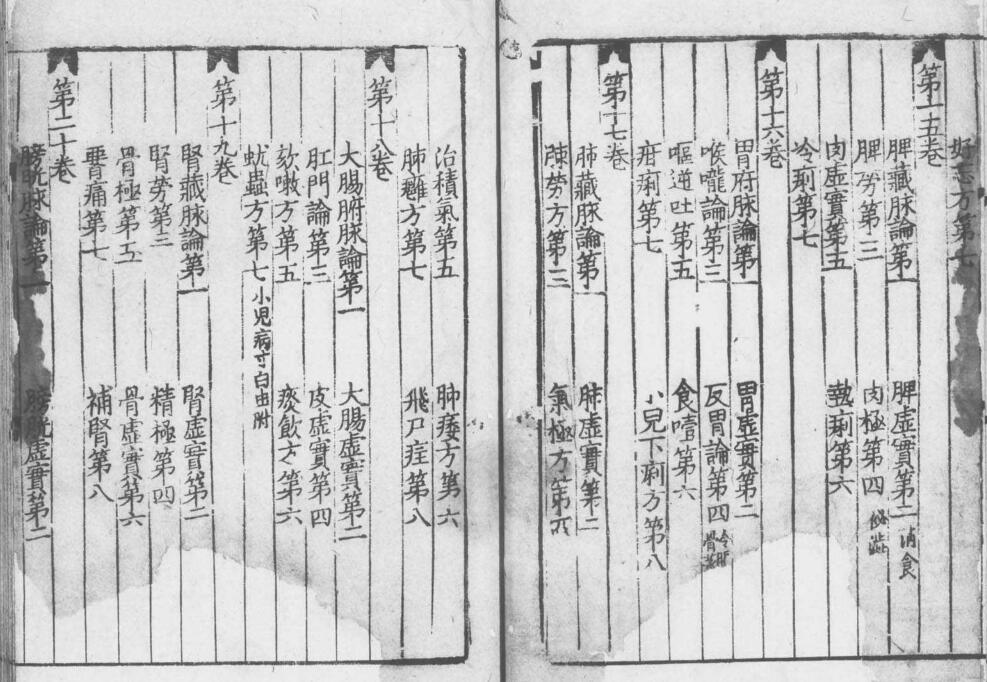 好忘方第七
第十五卷
脾藏脉論第一 脾虛實第二 消食
脾勞第三 肉極第四 秘澁
肉虛實第五 熱痢第六
冷痢第七
第十六卷
胃府脉論第一 胃虛實第二
喉嚨論第三 反胃論第四
嘔逆吐第五 食噎第六
疳痢第七 小兒下痢方第八
第十七卷
肺藏脉論第一 肺虛實第二
肺勞方第三 氣極方第四
治積氣第五 肺痿方第六
肺癰方第七 飛尸疰第八
第十八卷
大腸腑脉論第一 大腸虛實第二
肛門論第三 皮虛實第四
欬嗽方第五 痰飲方第六
蚘蟲方第七 小兒病寸白虫附
第十九卷
腎藏脉論第一 腎虛實第二
腎勞第三 精極第四
骨極第五 骨虛實第六
腰痛第七 補腎第八
第二十卷
膀胱脉論第一 膀胱虛實第二